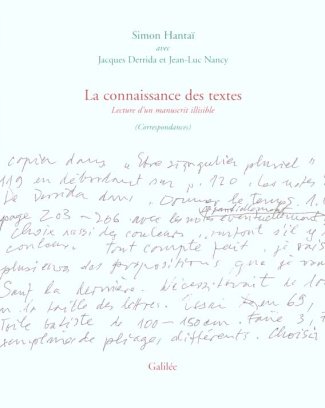 Simon Hantaï
avec
Jacques Derrida et Jean-Luc Nancy
La connaissance des textes
Lecture d'un manuscrit illisible
(Correspondances)
copier dans „Être singulier pluriel"
119 en débordant sur p. 120. Les notes
De Derrida dans „Donner le temps. 1.
page 203–206 avec les notes éventuellement
Choix aussi des couleurs, surtout s'il y
couleur. Tout compte fait, je vais
plusieurs des propositions que je
Sauf la dernière. Nécessiterait de
la taille des lettres. Essai en 69,
Toile batiste de 100–150 cm. Faire 3,
exemplaires de pliages différents. Choisir
Galilée